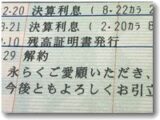 2-20 決算利息 ( 8.22カラ 2
8-21 決算利息 ( 2-20カラ
2-10 残高証明書発行
29 解約
永らくご愛顧いただき、
今後ともよろしくお引立